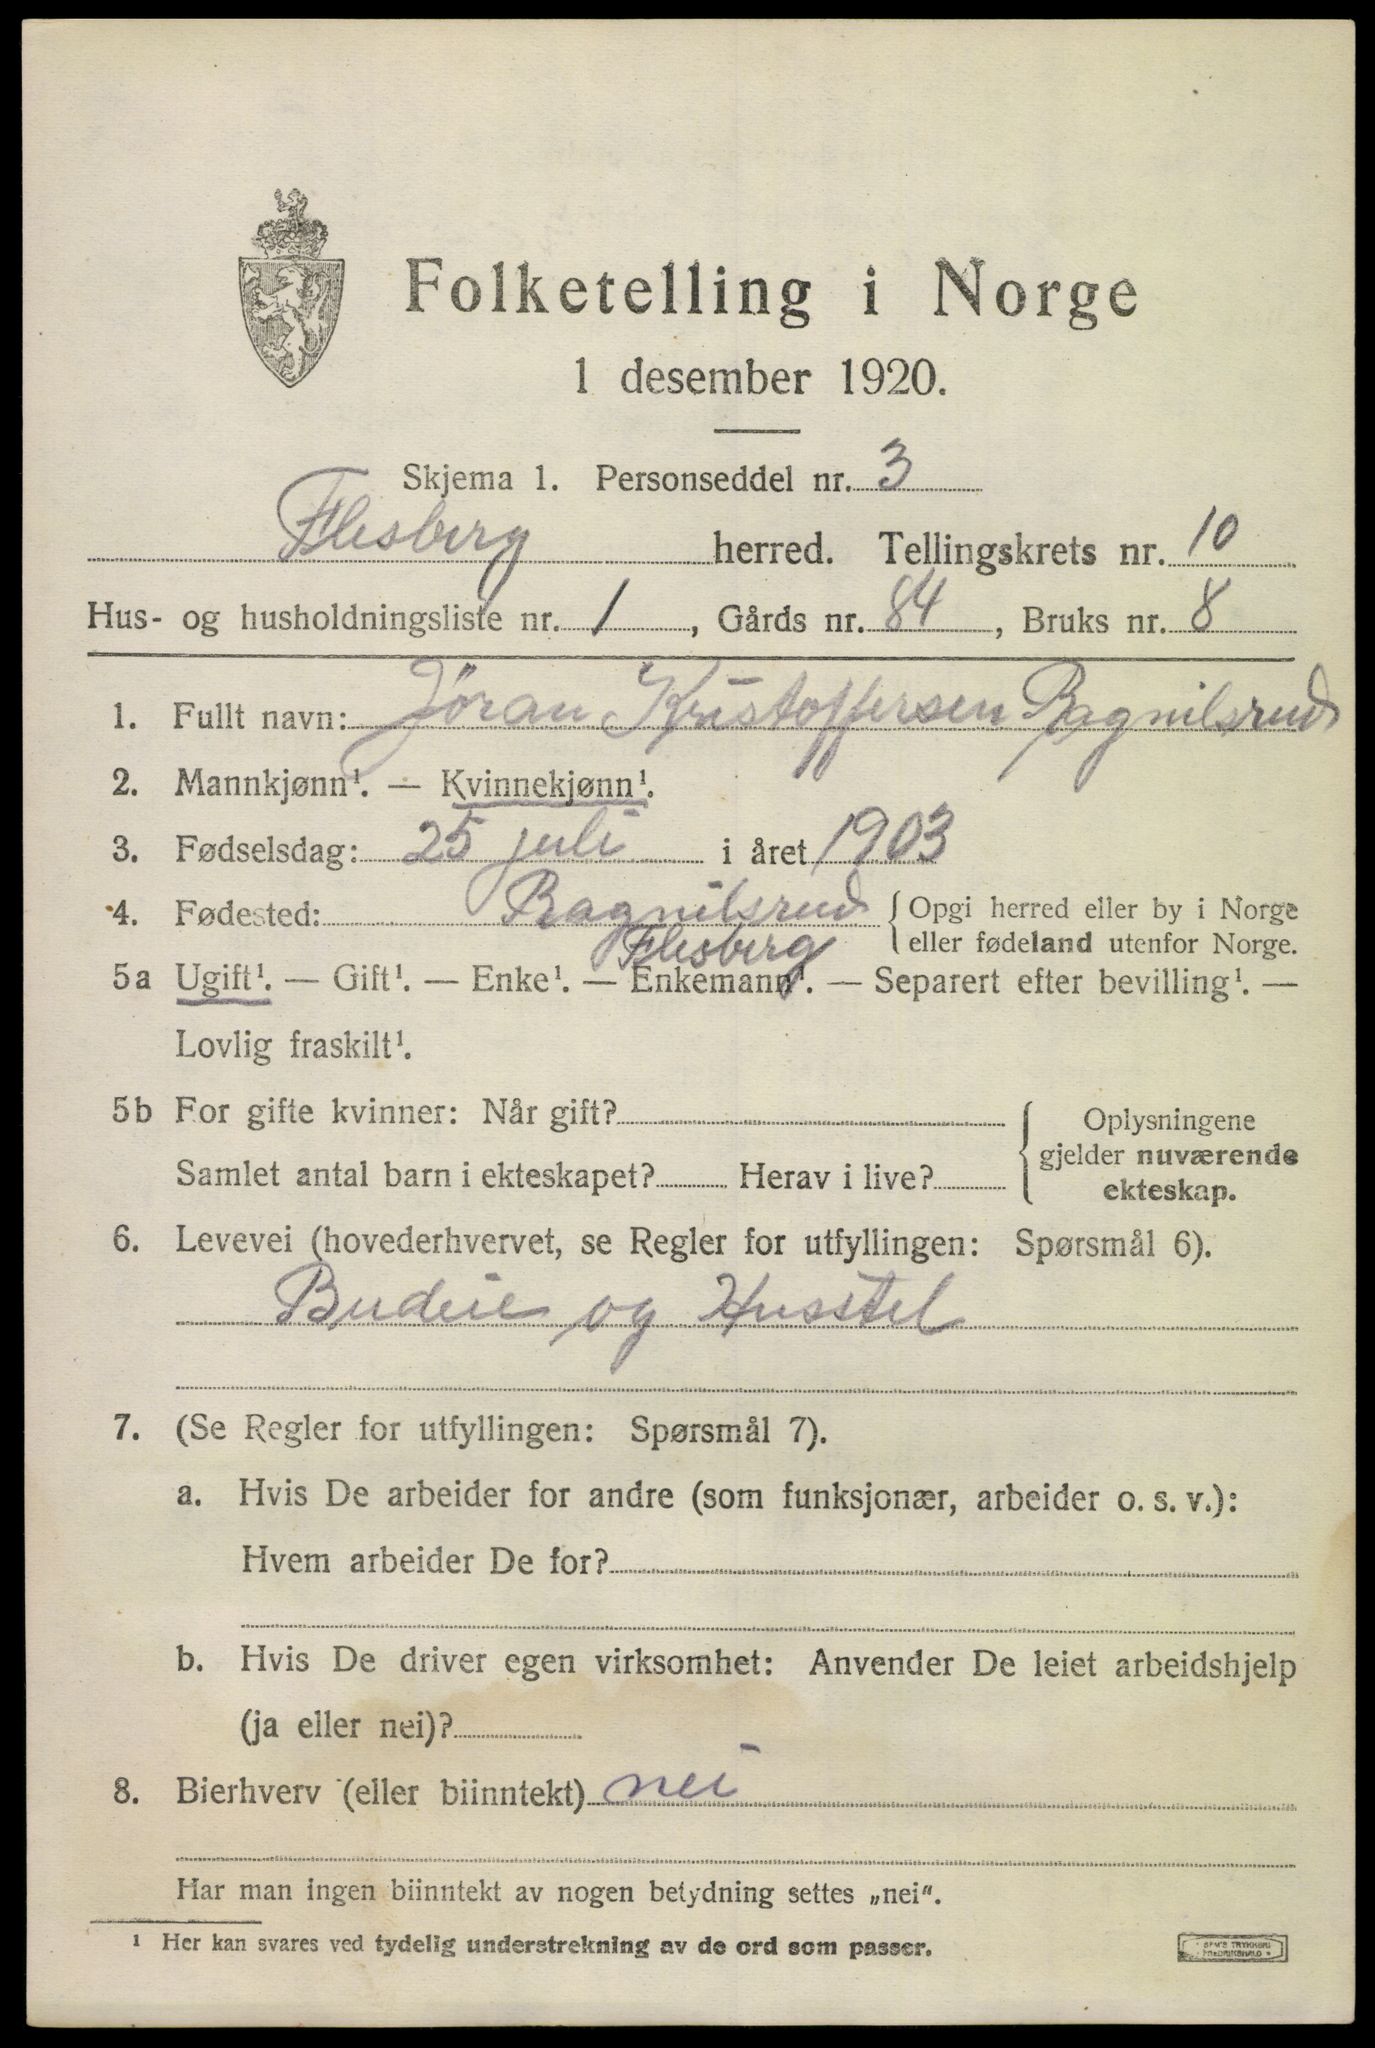 Folketelling i Norge
1 desember 1920.
Skjema 1. Personseddel nr. 3
Flesberg herred. Tellingskrets nr. 10
Hus- og husholdningsliste nr. 1, Gårds nr. 84, Bruks nr. 8
1. Fullt navn: Jöran Kristoffersen Ragnilsrud
2. Mannkjønn¹. — Kvinnekjønn¹.
3. Fødselsdag: 25 juli i året 1903
4. Fødested: Ragnilsrud { Opgi herred eller by i Norge
Flesberg eller fødeland utenfor Norge.
5a Ugift¹. — Gift¹. — Enke¹. — Enkemann¹. — Separert efter bevilling¹. —
Lovlig fraskilt¹.
5b For gifte kvinner: Når gift? { Oplysningene
gjelder nuværende
Samlet antal barn i ekteskapet? Herav i live? ekteskap.
6. Levevei (hovederhvervet, se Regler for utfyllingen: Spørsmål 6).
Budeie og Husstel
7. (Se Regler for utfyllingen: Spørsmål 7).
a. Hvis De arbeider for andre (som funksjonær, arbeider o. s. v.):
Hvem arbeider De for?
b. Hvis De driver egen virksomhet: Anvender De leiet arbeidshjelp
(ja eller nei)?
8. Bierhverv (eller biinntekt) nei
Har man ingen biinntekt av nogen betydning settes „nei“.
¹ Her kan svares ved tydelig understrekning av de ord som passer.
TRYKKERI
FREDRIKSHALD